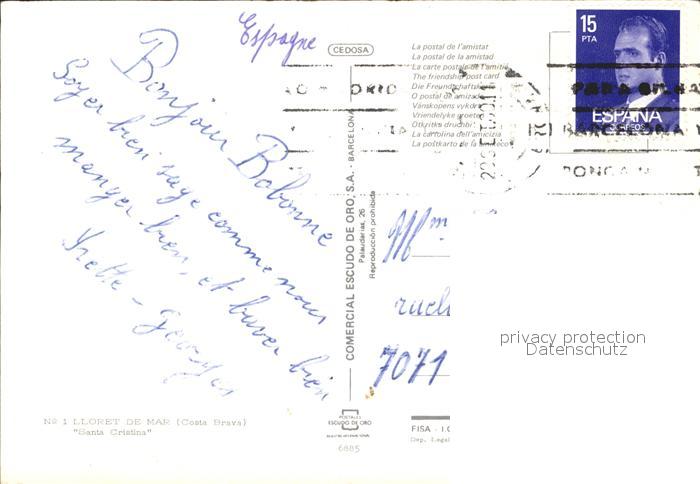 Espagne
CEDOSA
La postal de l'amistat
La postal de la amistad
La carte postale de l'amitié
The friendship post card
Die Freundschaftskarte
O postal de amizade
Vänskopens vykort
Vriendelyke groeten
Otkritka druchbi
La cartolina dell'amicizia
La postkarto de la amikeco
15
PTA
ESPAÑA
CORREOS
BARCELONA
Bonjour Bobonne
Soyer bien sage comme nous
manger bien, et baver bien
Yvette - Georges
COMERCIAL ESCUDO DE ORO, S.A. - BARCELONA
Palaudarias, 26
Reproducción prohibida
Mm
ruel
7071
privacy protection
Datenschutz
Nº 1 LLORET DE MAR (Costa Brava)
"Santa Cristina"
POSTALES
ESCUDO DE ORO
6885
FISA - I.G
Dep. Legal